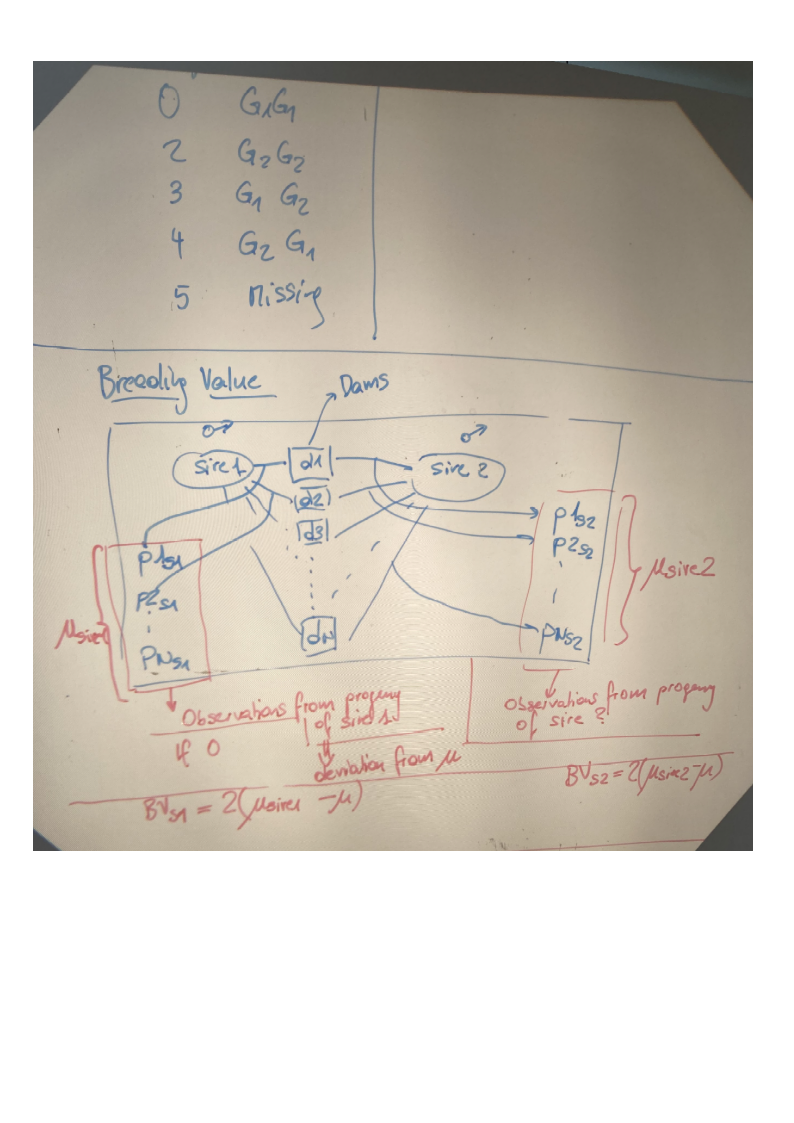 0 G1G1
2 G2 G2
3 G1 G2
4 G2 G1
5 Missing
Breeding Value
Dams
♂
♂
sire 1
d1
sire 2
d2
d3
dN
P1S1
P2S1
PNS1
P1S2
P2S2
PNS2
μsire2
Observations from progeny
of sire 1
If 0
deviation from μ
Observations from progeny
of sire 2
BVS1 = 2(μsire1 - μ)
BVS2 = 2(μsire2 - μ)